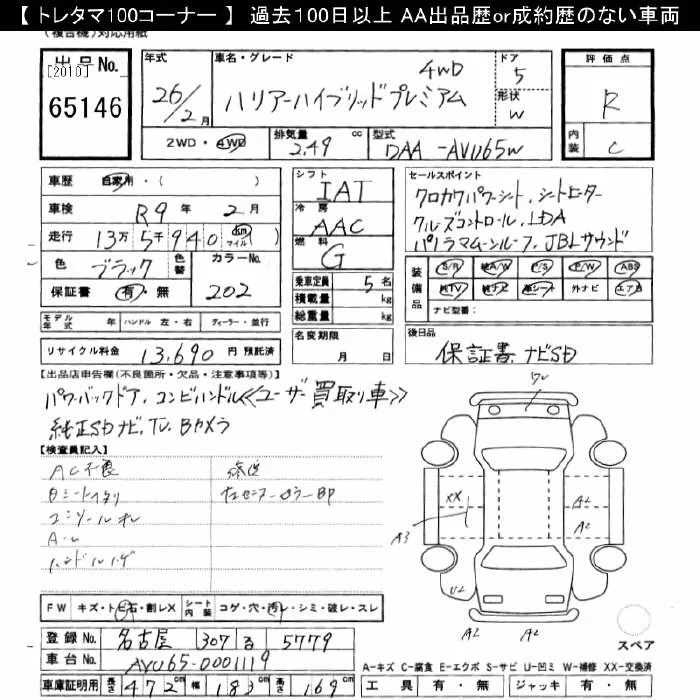 【 トレタマ100コーナー 】 過去100日以上 AA出品歴or成約歴のない車両
(複合機)対応用紙
出品No. [2010] 65146
年式 26/2月
車名・グレード ハリアーハイブリッドプレミアム 4WD
ドア 5
形状 W
評価点 R
内装 C
2WD・4WD 排気量 2.49 cc 型式 DAA-AVU65W
車歴 自家用・( )
車検 R9年 2月
走行 13万5千940 km マイル( )
色 ブラック 色替 カラーNo. 202
保証書 有・無
シフト IAT
冷房 AAC
燃料 G
乗車定員 5名
積載量 kg
総重量 kg
セールスポイント
クロカワパワーシート、シートヒーター
クルーズコントロール、LDA
パノラマムーンルーフ、JBLサウンド
装備品 S/R 純A/W P/S P/W ABS
純TV 純ナビ 革シート 外ナビ エアB
ナビ型番:
モデル年式 年 ハンドル 左・右 ディーラー・並行
リサイクル料金 13,690円 預託済
名変期限 月 日
後日品 保証書、ナビSD
【出品店申告欄(不良箇所・欠品・注意事項等)】
パワーバックドア、コンビハンドル≪ユーザー買取り車≫
純正SDナビ、TV、Bカメラ
【検査員記入】
AC不良 修復
ハンドルハゲ
W
XX
A3
A2
A2
U2
A2
A2
FW キズ・トビ石・割レX シート内装 コゲ・穴・汚レ・シミ・破レ・スレ
登録No. 名古屋 307 る 5779
車台No. AVU65-0001119
車庫証明用 長さ 472cm 幅 183cm 高さ 169cm
スペア
A-キズ C-腐食 E-エクボ S-サビ U-凹ミ W-補修 XX-交換済
工具 有・無 ジャッキ 有・無